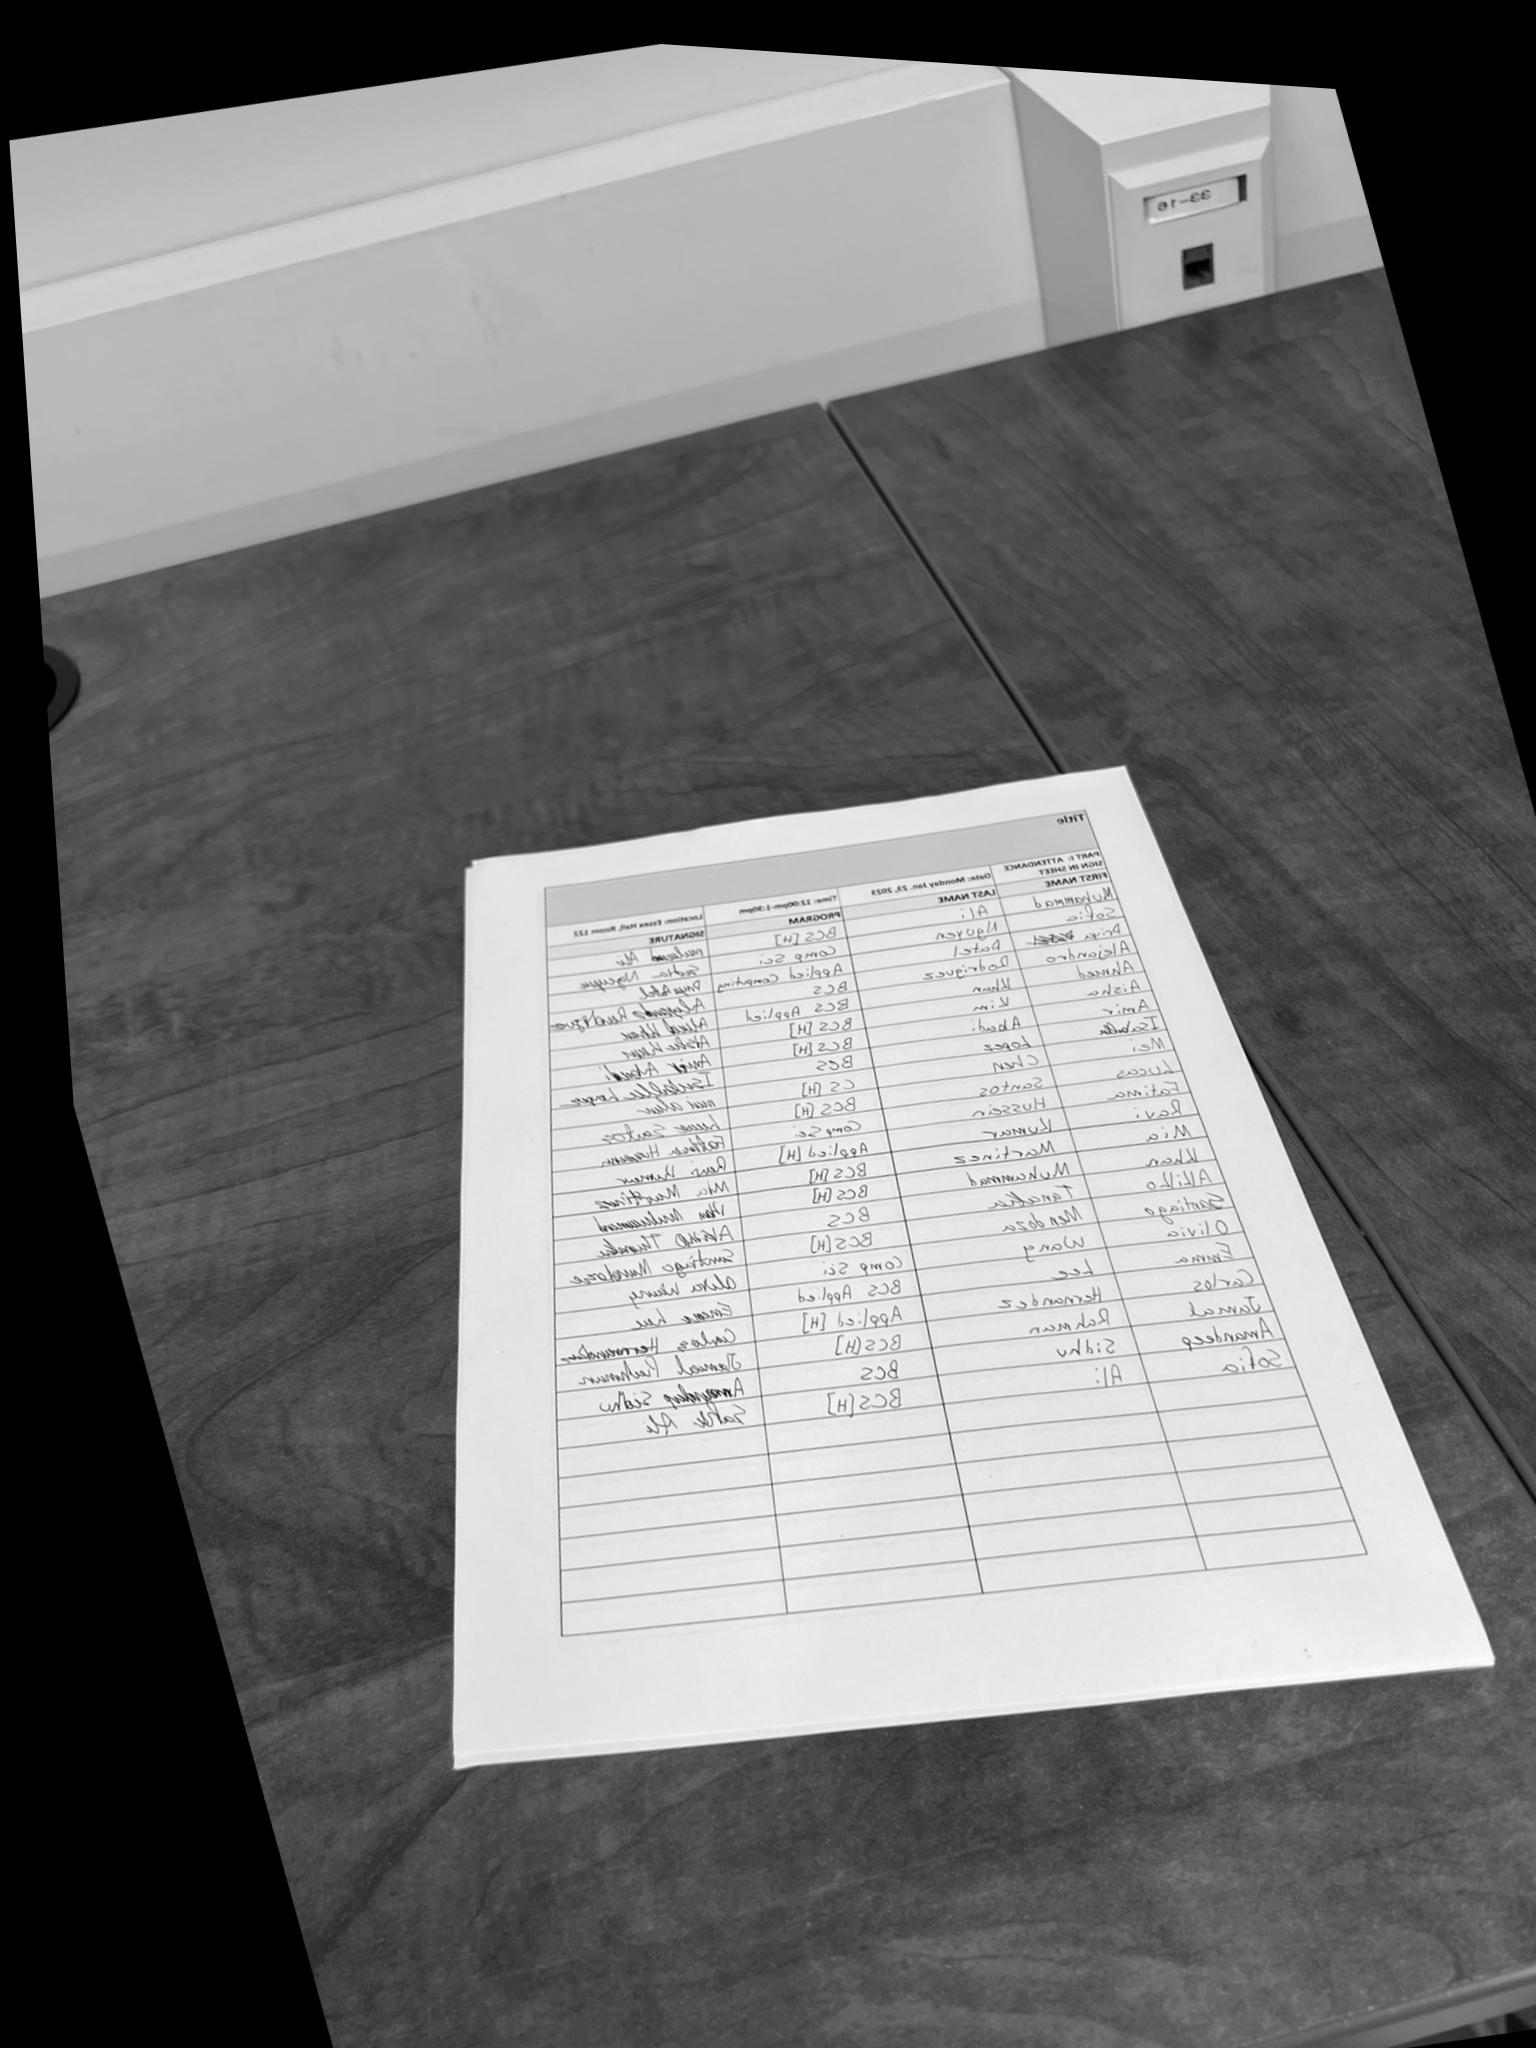 33-16
Title
PART I: ATTENDANCE SIGN IN SHEET Date: Monday Jan. 23, 2023 Time: 12:00pm-1:30pm Location: Essex Hall, Room 122
FIRST NAME LAST NAME PROGRAM SIGNATURE
Muhammad Ali BCS [H] Ali
Sofia Nguyen Comp Sci Sofia Nguyen
Priya Patel Applied Computing
Alejandro Rodriguez BCS Alejandro Rodriguez
Ahmed Khan BCS Applied Ahmed Khan
Aisha Kim BCS [H] Aisha
Amir Abadi BCS [H] Amir Abadi
Isabella Lopez BCS Isabella Lopez
Mei Chen CS [H] mei chen
Lucas Santos BCS [H] Santos
Fatima Hussein Comp Sci Fatima
Ravi Kumar Applied [H] Ravi Kumar
Mia Martinez BCS [H] Mia Martinez
Khan Muhammad BCS [H] Muhammad
Akiko Tanaka BCS
Santiago Mendoza BCS [H] Santiago Mendoza
Olivia Wang Comp Sci Wang
Emma Lee BCS Applied Emma Lee
Carlos Hernandez Applied [H] Carlos Hernandez
Jamal Rahman BCS [H] Jamal Rahman
Amandeep Sidhu BCS Amandeep Sidhu
Sofia Ali BCS [H] Ali